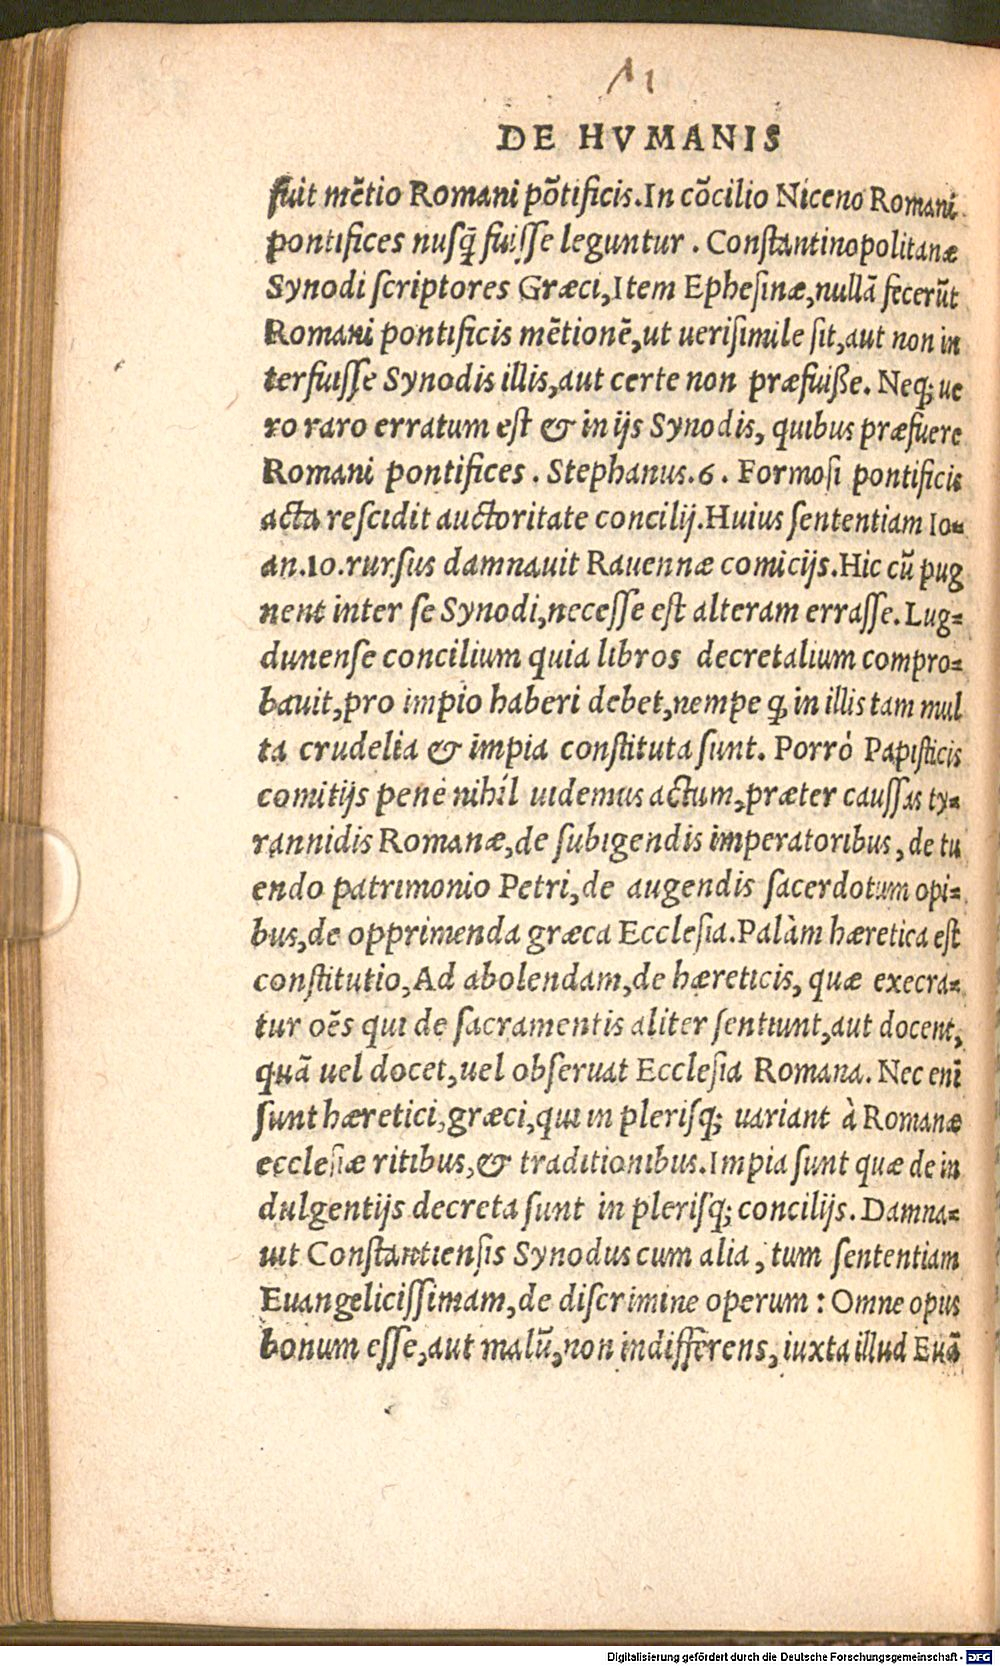 DE HVMANIS
fuit mētio Romani põtificis. In cõcilio Niceno Romani
pontifices nusq̃ fuisse leguntur. Constantinopolitanæ
Synodi scriptores Græci, Item Ephesinæ, nullã fecerũt
Romani pontificis mẽtionẽ, ut uerisimile sit, aut non in
terfuisse Synodis illis, aut certe non præfuiße. Neq; ue
ro raro erratum est & in ijs Synodis, quibus præfuere
Romani pontifices. Stephanus. 6. Formosi pontificis
acta rescidit auctoritate concilij. Huius sententiam Io=
an. 10. rursus damnauit Rauennæ comicijs. Hic cũ pug
nent inter se Synodi, necesse est alteram errasse. Lug=
dunense concilium quia libros decretalium compro=
bauit, pro impio haberi debet, nempe q̃ in illis tam mul
ta crudelia & impia constituta sunt. Porrò Papisticis
comitijs penè nihil uidemus actum, præter caussas ty=
rannidis Romanæ, de subigendis imperatoribus, de tu
endo patrimonio Petri, de augendis sacerdotum opi=
bus, de opprimenda græca Ecclesia. Palàm hæretica est
constitutio, Ad abolendam, de hæreticis, quæ execra=
tur oẽs qui de sacramentis aliter sentiunt, aut docent,
quã uel docet, uel obseruat Ecclesia Romana. Nec enĩ
sunt hæretici, græci, qui in plerisq; uariant à Romanæ
ecclesiæ ritibus, & traditionibus. Impia sunt quæ de in
dulgentijs decreta sunt in plerisq; concilijs. Damna=
uit Constantiensis Synodus cum alia, tum sententiam
Euangelicissimam, de discrimine operum: Omne opus
bonum esse, aut malũ, non indifferens, iuxta illud Euã
Digitalisierung gefördert durch die Deutsche Forschungsgemeinschaft - DFG